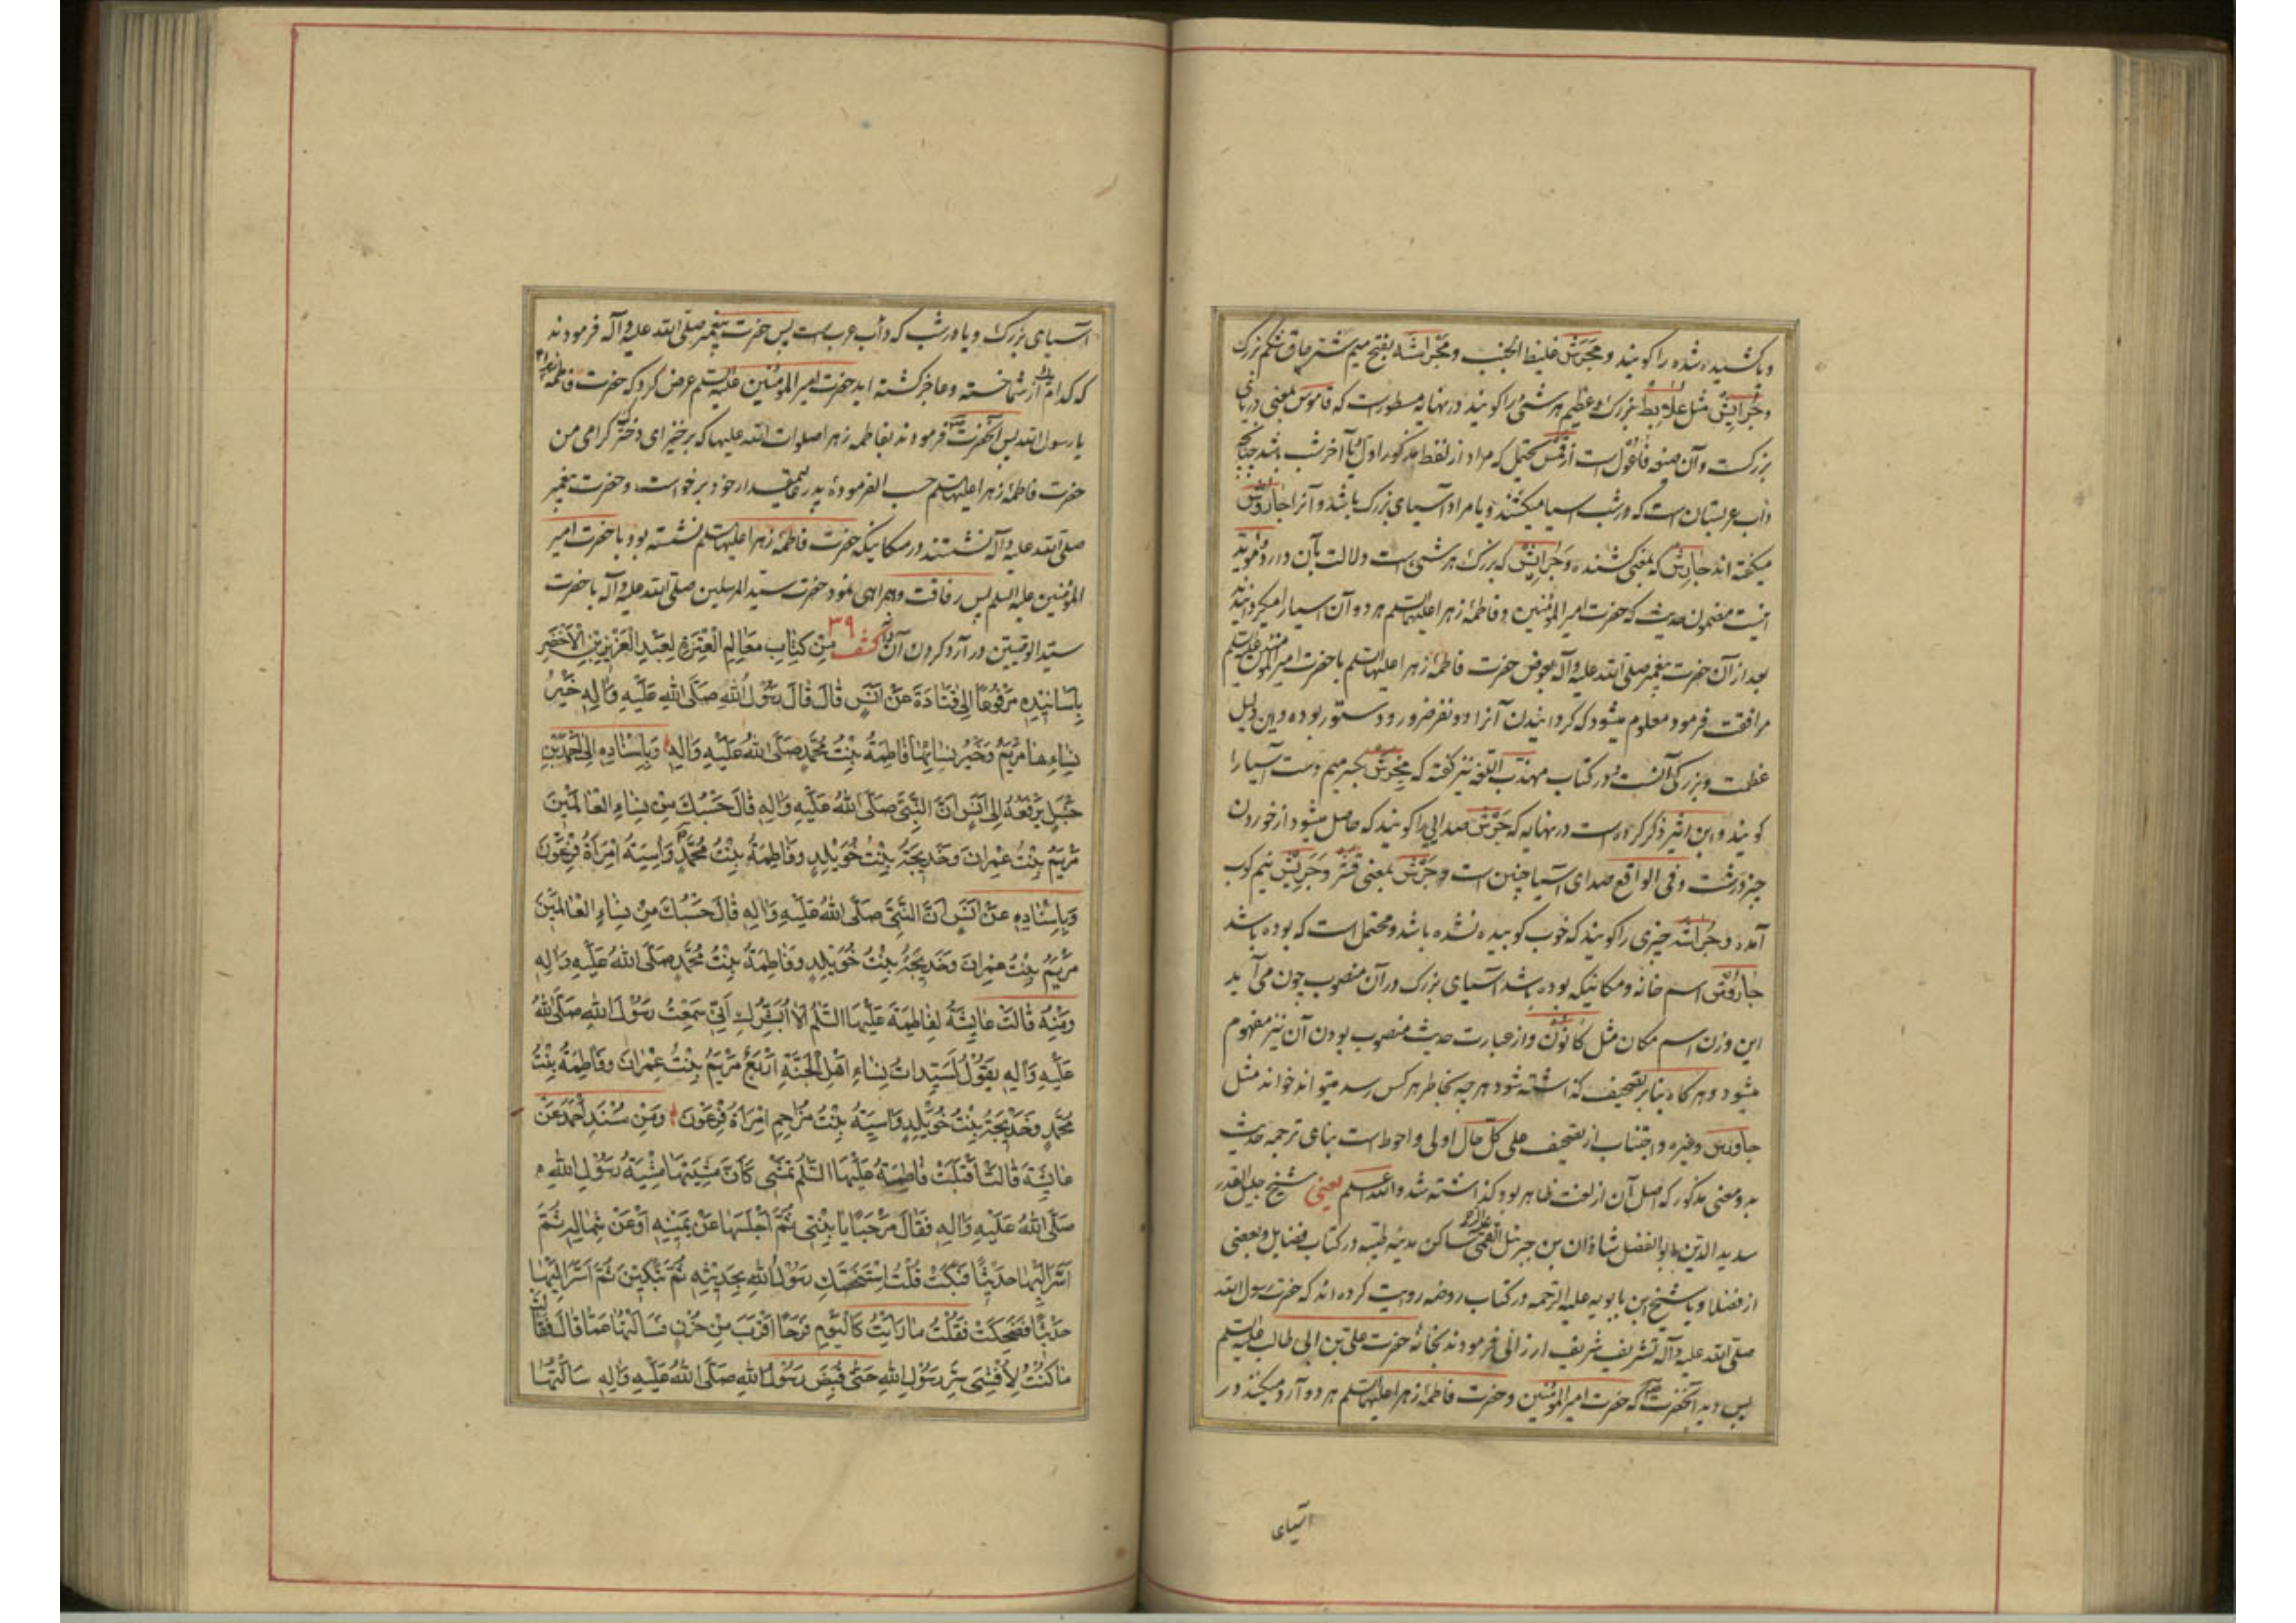 و باکشیده شده را کویند و مجرش غلیظ الجنب و مجراشه بفتح میم شتر چاق شکم بزرک
و جرایش مثل علابط بزرک و عظیم هر شئ را کویند در نهایه مسطور است که قاموس بمعنی دریای
بزرکست و آن صیغه فاعول است از قمس محتمل که مراد از لفظ مذکور اول یا آخر شب باشد چنانچه
داب عربستان است که در شب اسیا میکشند و یا مراد آسیای بزرک باشد و آنرا جاروش
میکفته اند جارش که بمعنی کشنده و جرایش که بزرک هر شئ است دلالت بآن دارد و موید
اینست مضمون حدیث که حضرت امیر المؤمنین و فاطمه زهرا علیهما السلم هر دو آن اسیا را میکردانیدند
بعد از آن حضرت پیغمبر صلی الله علیه وآله بعوض حضرت فاطمه زهرا علیها السلم با حضرت امیر المؤمنین علیه السلم
مرافقت فرمود معلوم میشود که کردانیدن آنرا دو نفر ضرور و دستور بوده و این دلیل
عظمت و بزرکی آنست و در کتاب مهذب اللغه نیز کفته که مجرش بکسر میم دست آسیا را
کویند و ابن اثیر ذکر کرده است در نهایه که جرش صدایی را کویند که حاصل میشود از خوردن
چیز درشت و فی الواقع صدای آسیا چنین است و جرش بمعنی قشر و جریش نیم کوب
آمده و جراشه چیزی را کویند که خوب کوبیده نشده باشد و محتمل است که بوده باشد
جاروش اسم خانه و مکانیکه بوده باشد آسیای بزرک در آن منصوب چون می آید
این وزن اسم مکان مثل کانون و از عبارت حدیث منصوب بودن آن نیز مفهوم
میشود و هر کاه بنابر تصحیف کذاشته شود هر چه بخاطر هر کس رسد میتواند خواند مثل
جاورس و غیره و اجتناب از تصحیف علی کل حال اولی و احوط است بناءً علی ترجمه حدیث
بدو معنی مذکور که اصل آن از لغت ظاهر بود کذاشته شد والله اعلم یعنی شیخ جلیل القدر
سدید الدین ابو الفضل شاذان بن جبرئیل القمی علیه الرحمه ساکن مدینه طیبه در کتاب فضایل و بعضی
از فضلا و یا شیخ ابن بابویه علیه الرحمه در کتاب روضه روایت کرده اند که حضرت رسول الله
صلی الله علیه وآله تشریف شریف ارزانی فرمودند بخانه حضرت علی بن ابی طالب علیه السلم
پس دید آنحضرت که حضرت امیر المؤمنین و حضرت فاطمه زهرا علیهما السلم هر دو آرد میکنند در
آسیای
آسیای بزرک و یا در شب که دأب عرب است پس حضرت پیغمبر صلی الله علیه وآله فرمودند
که کدام یک از شما خسته و عاجز کشته اید حضرت امیر المؤمنین علیه السلم عرض کرد که حضرت فاطمه
یا رسول الله پس آنحضرت فرمودند بفاطمه زهرا صلوات الله علیها که برخیز ای دختر کرامی من
حضرت فاطمه زهرا علیها السلم حسب الفرموده پدر عالیمقدار خود برخواست و حضرت پیغمبر
صلی الله علیه وآله نشستند در مکانیکه حضرت فاطمه زهرا علیها السلم نشسته بود با حضرت امیر
المؤمنین علیه السلم پس رفاقت و همراهی نمود حضرت سید المرسلین صلی الله علیه وآله با حضرت
سید الوصیین در آرد کردن آن ٣٩ کشف مِنْ كِتَابِ مَعَالِمِ الْعِتْرَةِ لِعَبْدِ الْعَزِيزِ بْنِ الْأَخْضَرِ
بِأَسَانِيدِهِ مَرْفُوعًا إِلَى قَتَادَةَ عَنْ أَنَسٍ قَالَ قَالَ رَسُولُ اللهِ صَلَّى اللهُ عَلَيْهِ وَآلِهِ خَيْرُ
نِسَاءِهَا مَرْيَمُ وَخَيْرُ نِسَائِهَا فَاطِمَةُ بِنْتُ مُحَمَّدٍ صَلَّى اللهُ عَلَيْهِ وَآلِهِ وَبِإِسْنَادِهِ إِلَى أَحْمَدَ بْنِ
حَنْبَلٍ يَرْفَعُهُ إِلَى أَنَسٍ أَنَّ النَّبِيَّ صَلَّى اللهُ عَلَيْهِ وَآلِهِ قَالَ حَسْبُكَ مِنْ نِسَاءِ الْعَالَمِينَ
مَرْيَمُ بِنْتُ عِمْرَانَ وَخَدِيجَةُ بِنْتُ خُوَيْلِدٍ وَفَاطِمَةُ بِنْتُ مُحَمَّدٍ وَآسِيَةُ امْرَأَةُ فِرْعَوْنَ
وَبِإِسْنَادِهِ عَنْ أَنَسٍ أَنَّ النَّبِيَّ صَلَّى اللهُ عَلَيْهِ وَآلِهِ قَالَ حَسْبُكَ مِنْ نِسَاءِ الْعَالَمِينَ
مَرْيَمُ بِنْتُ عِمْرَانَ وَخَدِيجَةُ بِنْتُ خُوَيْلِدٍ وَفَاطِمَةُ بِنْتُ مُحَمَّدٍ صَلَّى اللهُ عَلَيْهِ وَآلِهِ
وَمِنْهُ قَالَتْ عَائِشَةُ لِفَاطِمَةَ عَلَيْهَا السَّلَمُ أَلَا أُبَشِّرُكِ أَنِّي سَمِعْتُ رَسُولَ اللهِ صَلَّى اللهُ
عَلَيْهِ وَآلِهِ يَقُولُ لَسَيِّدَاتُ نِسَاءِ أَهْلِ الْجَنَّةِ أَرْبَعٌ مَرْيَمُ بِنْتُ عِمْرَانَ وَفَاطِمَةُ بِنْتُ
مُحَمَّدٍ وَخَدِيجَةُ بِنْتُ خُوَيْلِدٍ وَآسِيَةُ بِنْتُ مُزَاحِمٍ امْرَأَةُ فِرْعَوْنَ وَمِنْ مُسْنَدِ أَحْمَدَ عَنْ
عَائِشَةَ قَالَتْ أَقْبَلَتْ فَاطِمَةُ عَلَيْهَا السَّلَمُ تَمْشِي كَأَنَّ مَشْيَتَهَا مَشْيَةُ رَسُولِ اللهِ
صَلَّى اللهُ عَلَيْهِ وَآلِهِ فَقَالَ مَرْحَبًا يَا بِنْتِي ثُمَّ أَجْلَسَهَا عَنْ يَمِينِهِ أَوْ عَنْ شِمَالِهِ ثُمَّ
أَسَرَّ إِلَيْهَا حَدِيثًا فَبَكَتْ قُلْتُ اسْتَخَصَّكِ رَسُولُ اللهِ بِحَدِيثِهِ ثُمَّ تَبْكِينَ ثُمَّ أَسَرَّ إِلَيْهَا
حَدِيثًا فَضَحِكَتْ فَقُلْتُ مَا رَأَيْتُ كَالْيَوْمِ فَرَحًا أَقْرَبَ مِنْ حُزْنٍ فَسَأَلْتُهَا عَمَّا قَالَ فَقَالَتْ
مَا كُنْتُ لِأُفْشِيَ سِرَّ رَسُولِ اللهِ حَتَّى قُبِضَ رَسُولُ اللهِ صَلَّى اللهُ عَلَيْهِ وَآلِهِ سَأَلْتُهَا